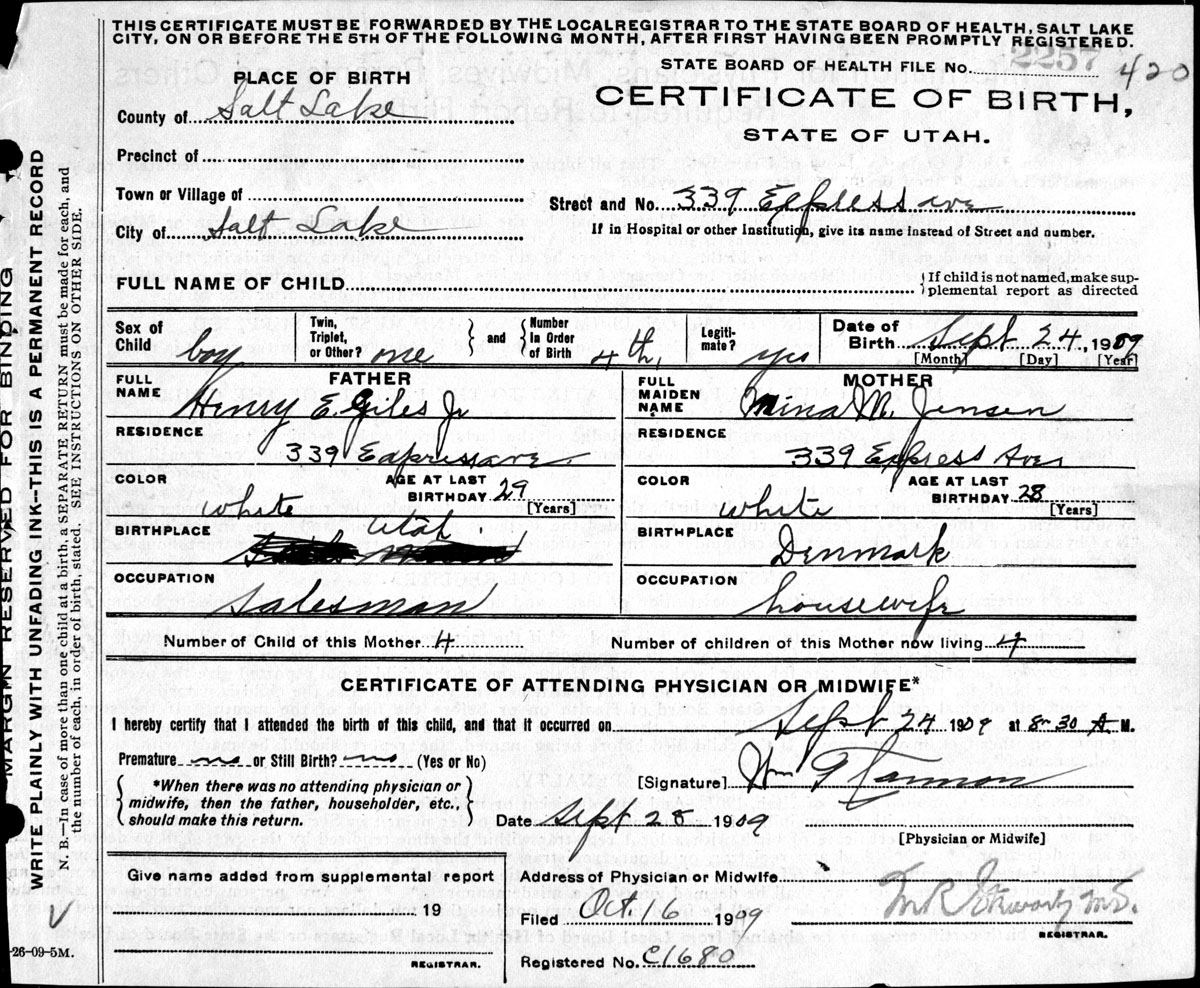 THIS CERTIFICATE MUST BE FORWARDED BY THE LOCAL REGISTRAR TO THE STATE BOARD OF HEALTH, SALT LAKE
CITY, ON OR BEFORE THE 5TH OF THE FOLLOWING MONTH, AFTER FIRST HAVING BEEN PROMPTLY REGISTERED.
STATE BOARD OF HEALTH FILE No. 2257 420
PLACE OF BIRTH
CERTIFICATE OF BIRTH,
County of Salt Lake
STATE OF UTAH.
Precinct of
Town or Village of
Street and No. 339 Express ave
City of Salt Lake
If in Hospital or other Institution, give its name instead of Street and number.
FULL NAME OF CHILD
{If child is not named, make sup-
plemental report as directed
Sex of Child boy
Twin, Triplet, or Other? one
and
Number in Order of Birth 4th,
Legiti- mate? yes
Date of Birth Sept 24, 1909
[Month] [Day] [Year]
FATHER
FULL NAME Henry E. Giles Jr
RESIDENCE
339 Express ave
COLOR white
AGE AT LAST BIRTHDAY 29 [Years]
BIRTHPLACE Utah
OCCUPATION
Salesman
MOTHER
FULL MAIDEN NAME Mina M. Jensen
RESIDENCE
339 Express Ave
COLOR white
AGE AT LAST BIRTHDAY 28 [Years]
BIRTHPLACE
Denmark
OCCUPATION
housewife
Number of Child of this Mother 4
Number of children of this Mother now living 4
CERTIFICATE OF ATTENDING PHYSICIAN OR MIDWIFE*
I hereby certify that I attended the birth of this child, and that it occurred on Sept 24 1909 at 8-30 A. M.
Premature no or Still Birth? no (Yes or No)
*When there was no attending physician or
midwife, then the father, householder, etc.,
should make this return.
[Signature] Wm F Cannon
Date Sept 28 1909
[Physician or Midwife]
Give name added from supplemental report
19
REGISTRAR.
Address of Physician or Midwife
Filed Oct. 16 1909
REGISTRAR.
Registered No. C1680
MARGIN RESERVED FOR BINDING
WRITE PLAINLY WITH UNFADING INK--THIS IS A PERMANENT RECORD
N. B.--In case of more than one child at a birth, a SEPARATE RETURN must be made for each, and
the number of each, in order of birth, stated. SEE INSTRUCTION ON OTHER SIDE.
-26-09-5M.